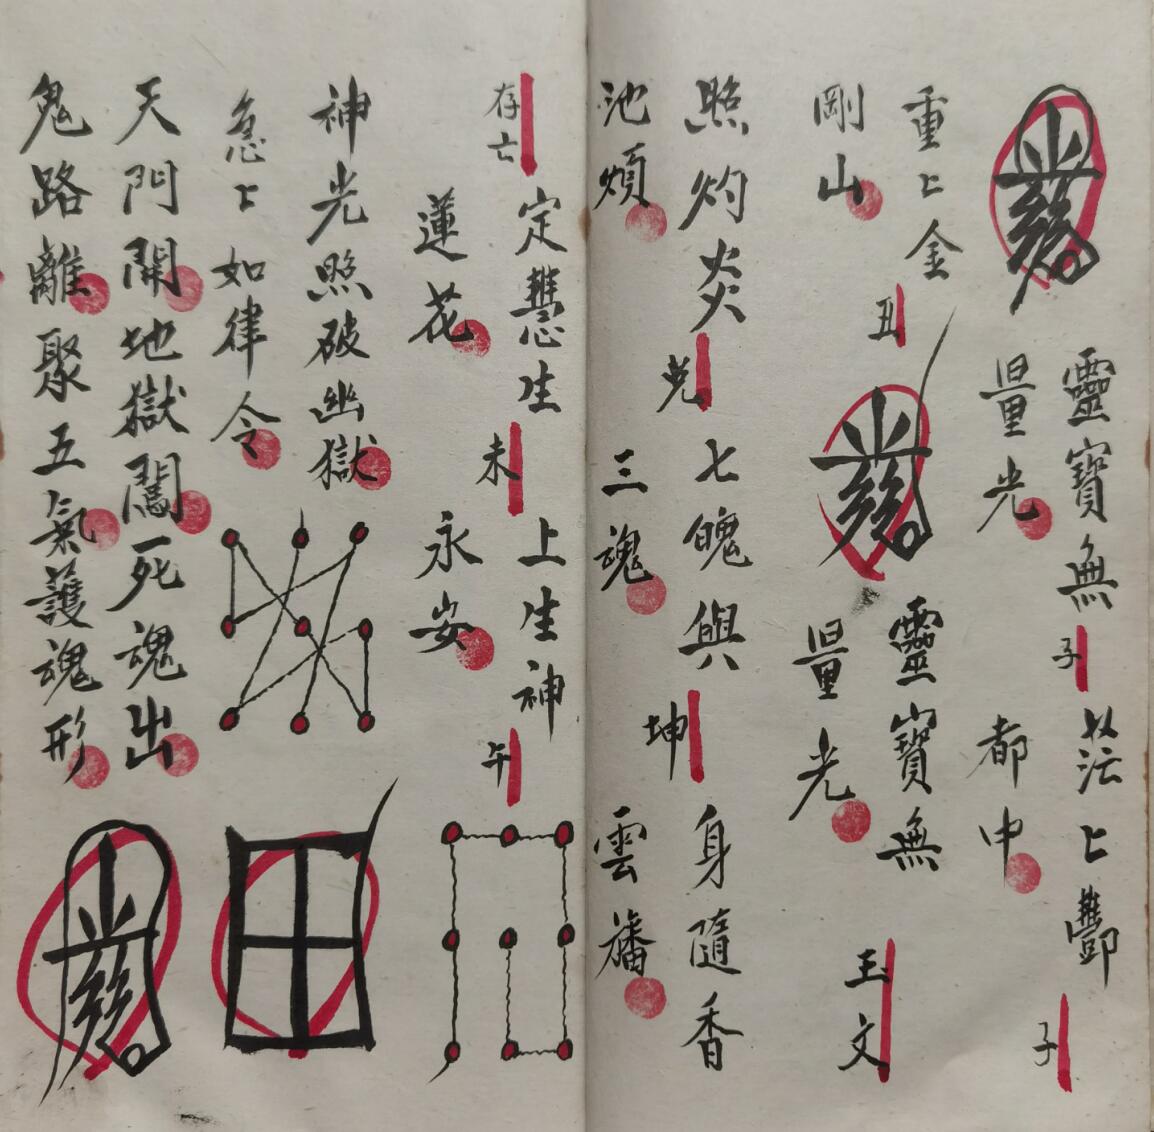 靈寶無
量光
子
上酆
都中
子
重上金
剛山
丑
靈寶無
量光
玉文
照灼炎
池煩
光
七魄與
三魂
坤
身隨香
雲旛
存亡
定慧生
蓮花
未
上生神
永安
午
神光照破幽獄
急上如律令
天門開地獄闖死魂出
鬼路離聚五氣護魂形